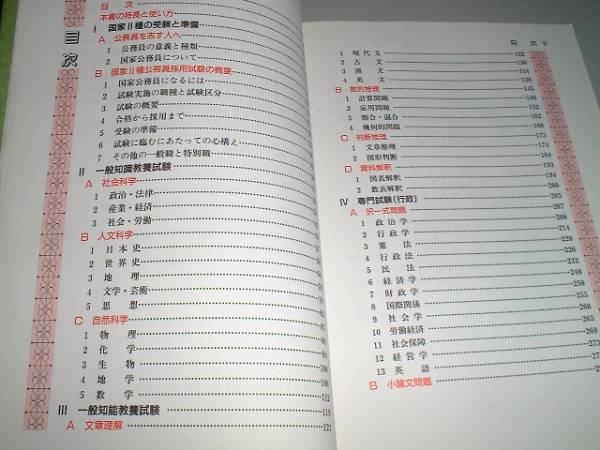 目次
目 次
本書の特長と使い方
I 国家Ⅱ種の受験と準備
A 公務員を志す人へ
1 公務員の意義と種類
2 国家公務員について
B 国家Ⅱ種公務員採用試験の概要
1 国家公務員になるには
2 試験実施の職種と試験区分
3 試験の概要
4 合格から採用まで
5 受験の準備
6 試験に臨むにあたっての心構え
7 その他の一般職と特別職
II 一般知識教養試験
A 社会科学
1 政治・法律
2 産業・経済
3 社会・労働
B 人文科学
1 日本史
2 世界史
3 地理
4 文学・芸術
5 思想
C 自然科学
1 物理
2 化学
3 生物
4 地学
5 数学 112
III 一般知能教養試験 119
A 文章理解 121
目 次 9
1 現代文 122
2 古文 130
3 漢文
4 英文
B 数的推理 145
1 計算問題
2 応用問題 152
3 割合・混合 162
4 幾何的問題
C 判断推理 173
1 文章推理 174
2 図形判断
D 資料解釈
1 図表解釈
2 数表解釈
IV 専門試験(行政) 205
A 択一式問題 207
1 政治学
2 行政学 214
3 憲法 220
4 行政法 226
5 民法
6 経済学
7 財政学
8 国際関係
9 社会学 260
10 労働経済 265
11 社会保障 269
12 経営学 273
13 英語
B 小論文問題